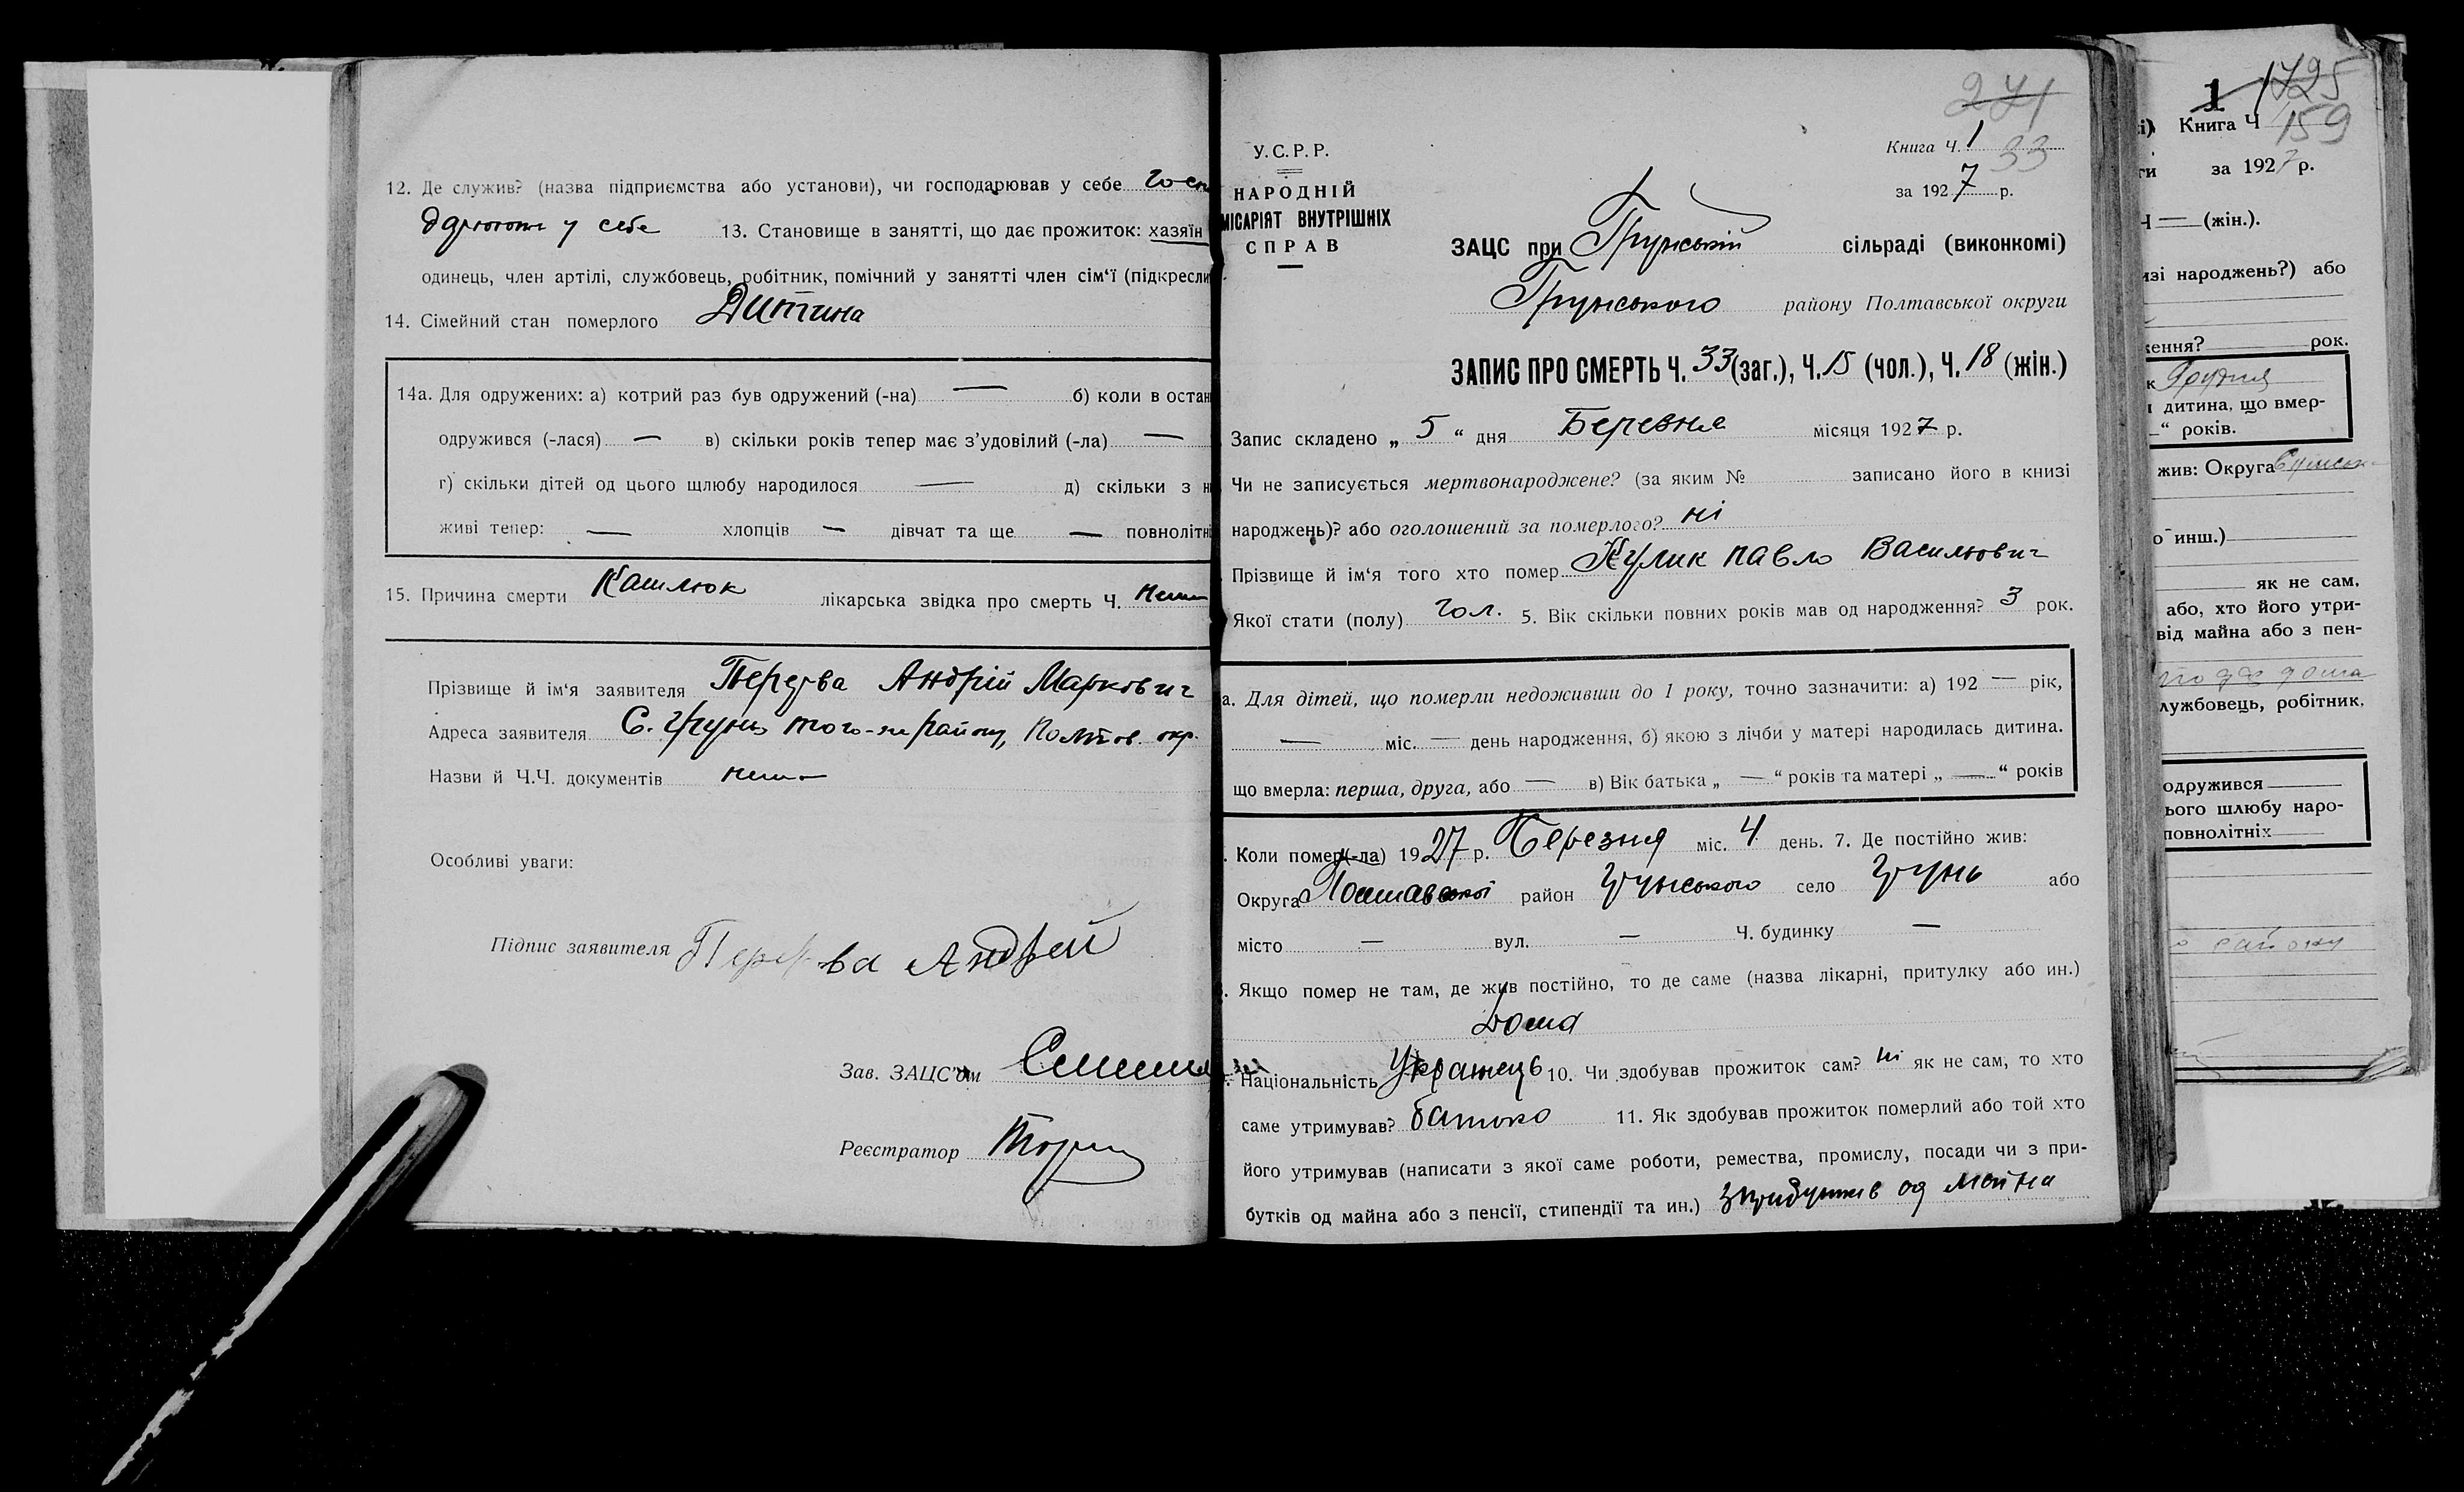 12. Де служив? (назва підприємства або установи), чи господарював у себе
у себе 13. Становище в занятті, що дає прожиток: хазяїн
одинець, член артілі, службовець, робітник, помічний у занятті член сім'ї (підкресли
14. Сімейний стан померлого Дитина
14а. Для одружених: а) котрий раз був одружений (-на) — б) коли в остан
одружився (-лася) — в) скільки років тепер має з'удовілий (-ла) —
г) скільки дітей од цього шлюбу народилося — д) скільки з н
живі тепер: — хлопців — дівчат та ще — повнолітні
15. Причина смерти Кашлюк лікарська звідка про смерть Ч.
Прізвище й ім'я заявителя Андрій Маркович
Адреса заявителя С. Грунь того-ж району, Полтав. окр.
Назви й Ч.Ч. документів нема
Особливі уваги:
Підпис заявителя Андрей
Зав. ЗАЦС'ом
Реєстратор
271
У.С.Р.Р. Книга Ч. 1 33
НАРОДНІЙ за 1927 р.
МІСАРІЯТ ВНУТРІШНІХ
СПРАВ ЗАЦС при Грунській сільраді (виконкомі)
Грунського району Полтавської округи
ЗАПИС ПРО СМЕРТЬ Ч. 33 (заг.), Ч. 15 (чол.), Ч. 18 (жін.)
Запис складено „ 5 “ дня Березня місяця 1927 р.
Чи не записується мертвонароджене? (за яким № записано його в книзі
народжень)? або оголошений за померлого? ні
Прізвище й ім'я того хто помер Кулик Павло Васильович
Якої стати (полу) чол. 5. Вік скільки повних років мав од народження? 3 рок.
а. Для дітей, що померли недоживши до 1 року, точно зазначити: а) 192 — рік,
— міс. — день народження, б) якою з лічби у матері народилась дитина.
що вмерла: перша, друга, або — в) Вік батька „ — “ років та матері „ — “ років
Коли помер(-ла) 1927 р. Березня міс. 4 день. 7. Де постійно жив:
Округа Полтавської район Грунського село Грунь або
місто — вул. — Ч. будинку —
Якщо помер не там, де жив постійно, то де саме (назва лікарні, притулку або ин.)
Дома
Національність Українець 10. Чи здобував прожиток сам? ні як не сам, то хто
саме утримував? батько 11. Як здобував прожиток померлий або той хто
його утримував (написати з якої саме роботи, ремества, промислу, посади чи з при-
бутків од майна або з пенсії, стипендії та ин.) з прибутків од майна
1 1725
і) Книга Ч 159
ти за 1927 р.
Ч — (жін.).
изі народжень?) або
ження? рок.
к Грудня
дитина, що вмер-
—“ років.
жив: Округа
о инш.)
як не сам,
або, хто його утри-
від майна або з пен-
лужбовець, робітник,
одружився
ього шлюбу наро-
повнолітніх
району